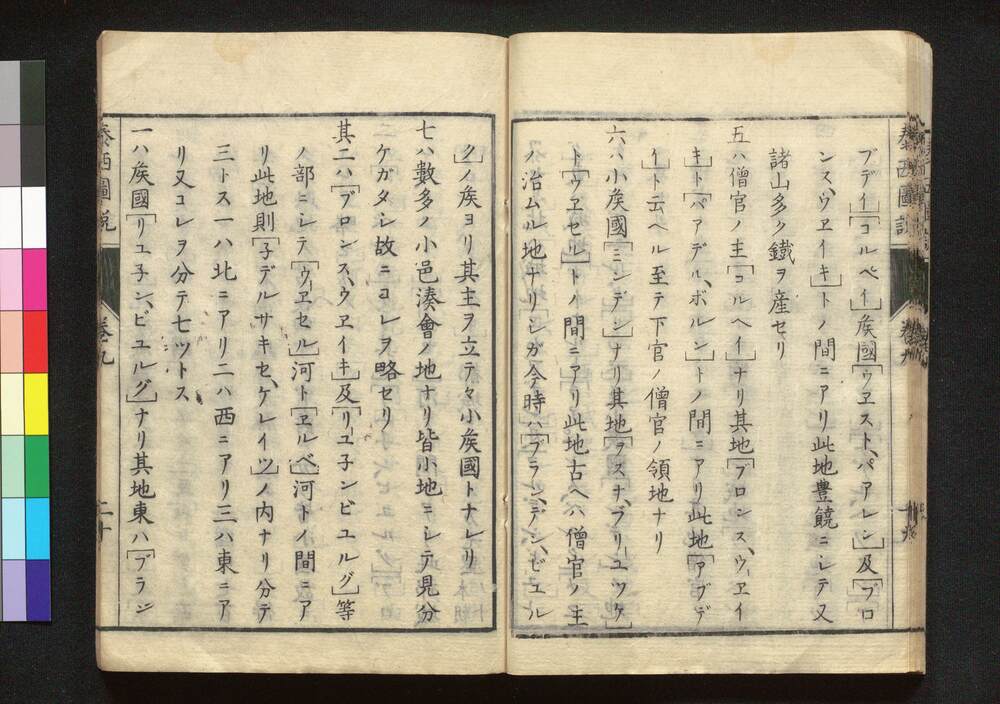 ブデイ[コルベイ]矦國[ウヱスト、パアレン]及[ブロ
ンス、ウヱイキ]トノ間ニアリ此地豊饒ニシテ又
諸山多ク鐵ヲ産セリ
五ハ僧官ノ主[コルヘイ]ナリ其地[ブロンス、ウヱイ
キ]ト[パアデル、ボルン]トノ間ニアリ此地[アブデ
イ]ト云ヘル至テ下官ノ僧官ノ領地ナリ
六ハ小矦國[ミンデン]ナリ其地[ヲスナ、ブリユツケ]
ト[ウヱセル]トノ間ニアリ此地古ヘハ僧官ノ主
ノ治ムル地ナリシガ今時ハ[ブラン、デン、ビユル
ク]ノ矦ヨリ其主ヲ立テヽ小矦國トナレリ
七ハ數多ノ小邑湊會ノ地ナリ皆小地ニシテ見分
ケガタシ故ニコレヲ略セリ
其二ハ[ブロンス、ウヱイキ]及[リユ子ンビユルグ]等
ノ部ニシテ[ウヱセル]河ト[ヱルベ]河トノ間ニア
リ此地則[子デルサキセ、ケレイツ]ノ内ナリ分テ
三トス一ハ北ニアリ二ハ西ニアリ三ハ東ニア
リ又コレヲ分テ七ツトス
一ハ矦國[リユ子ン、ビユルグ]ナリ其地東ハ[ブラン
泰西圖説
卷九
二十